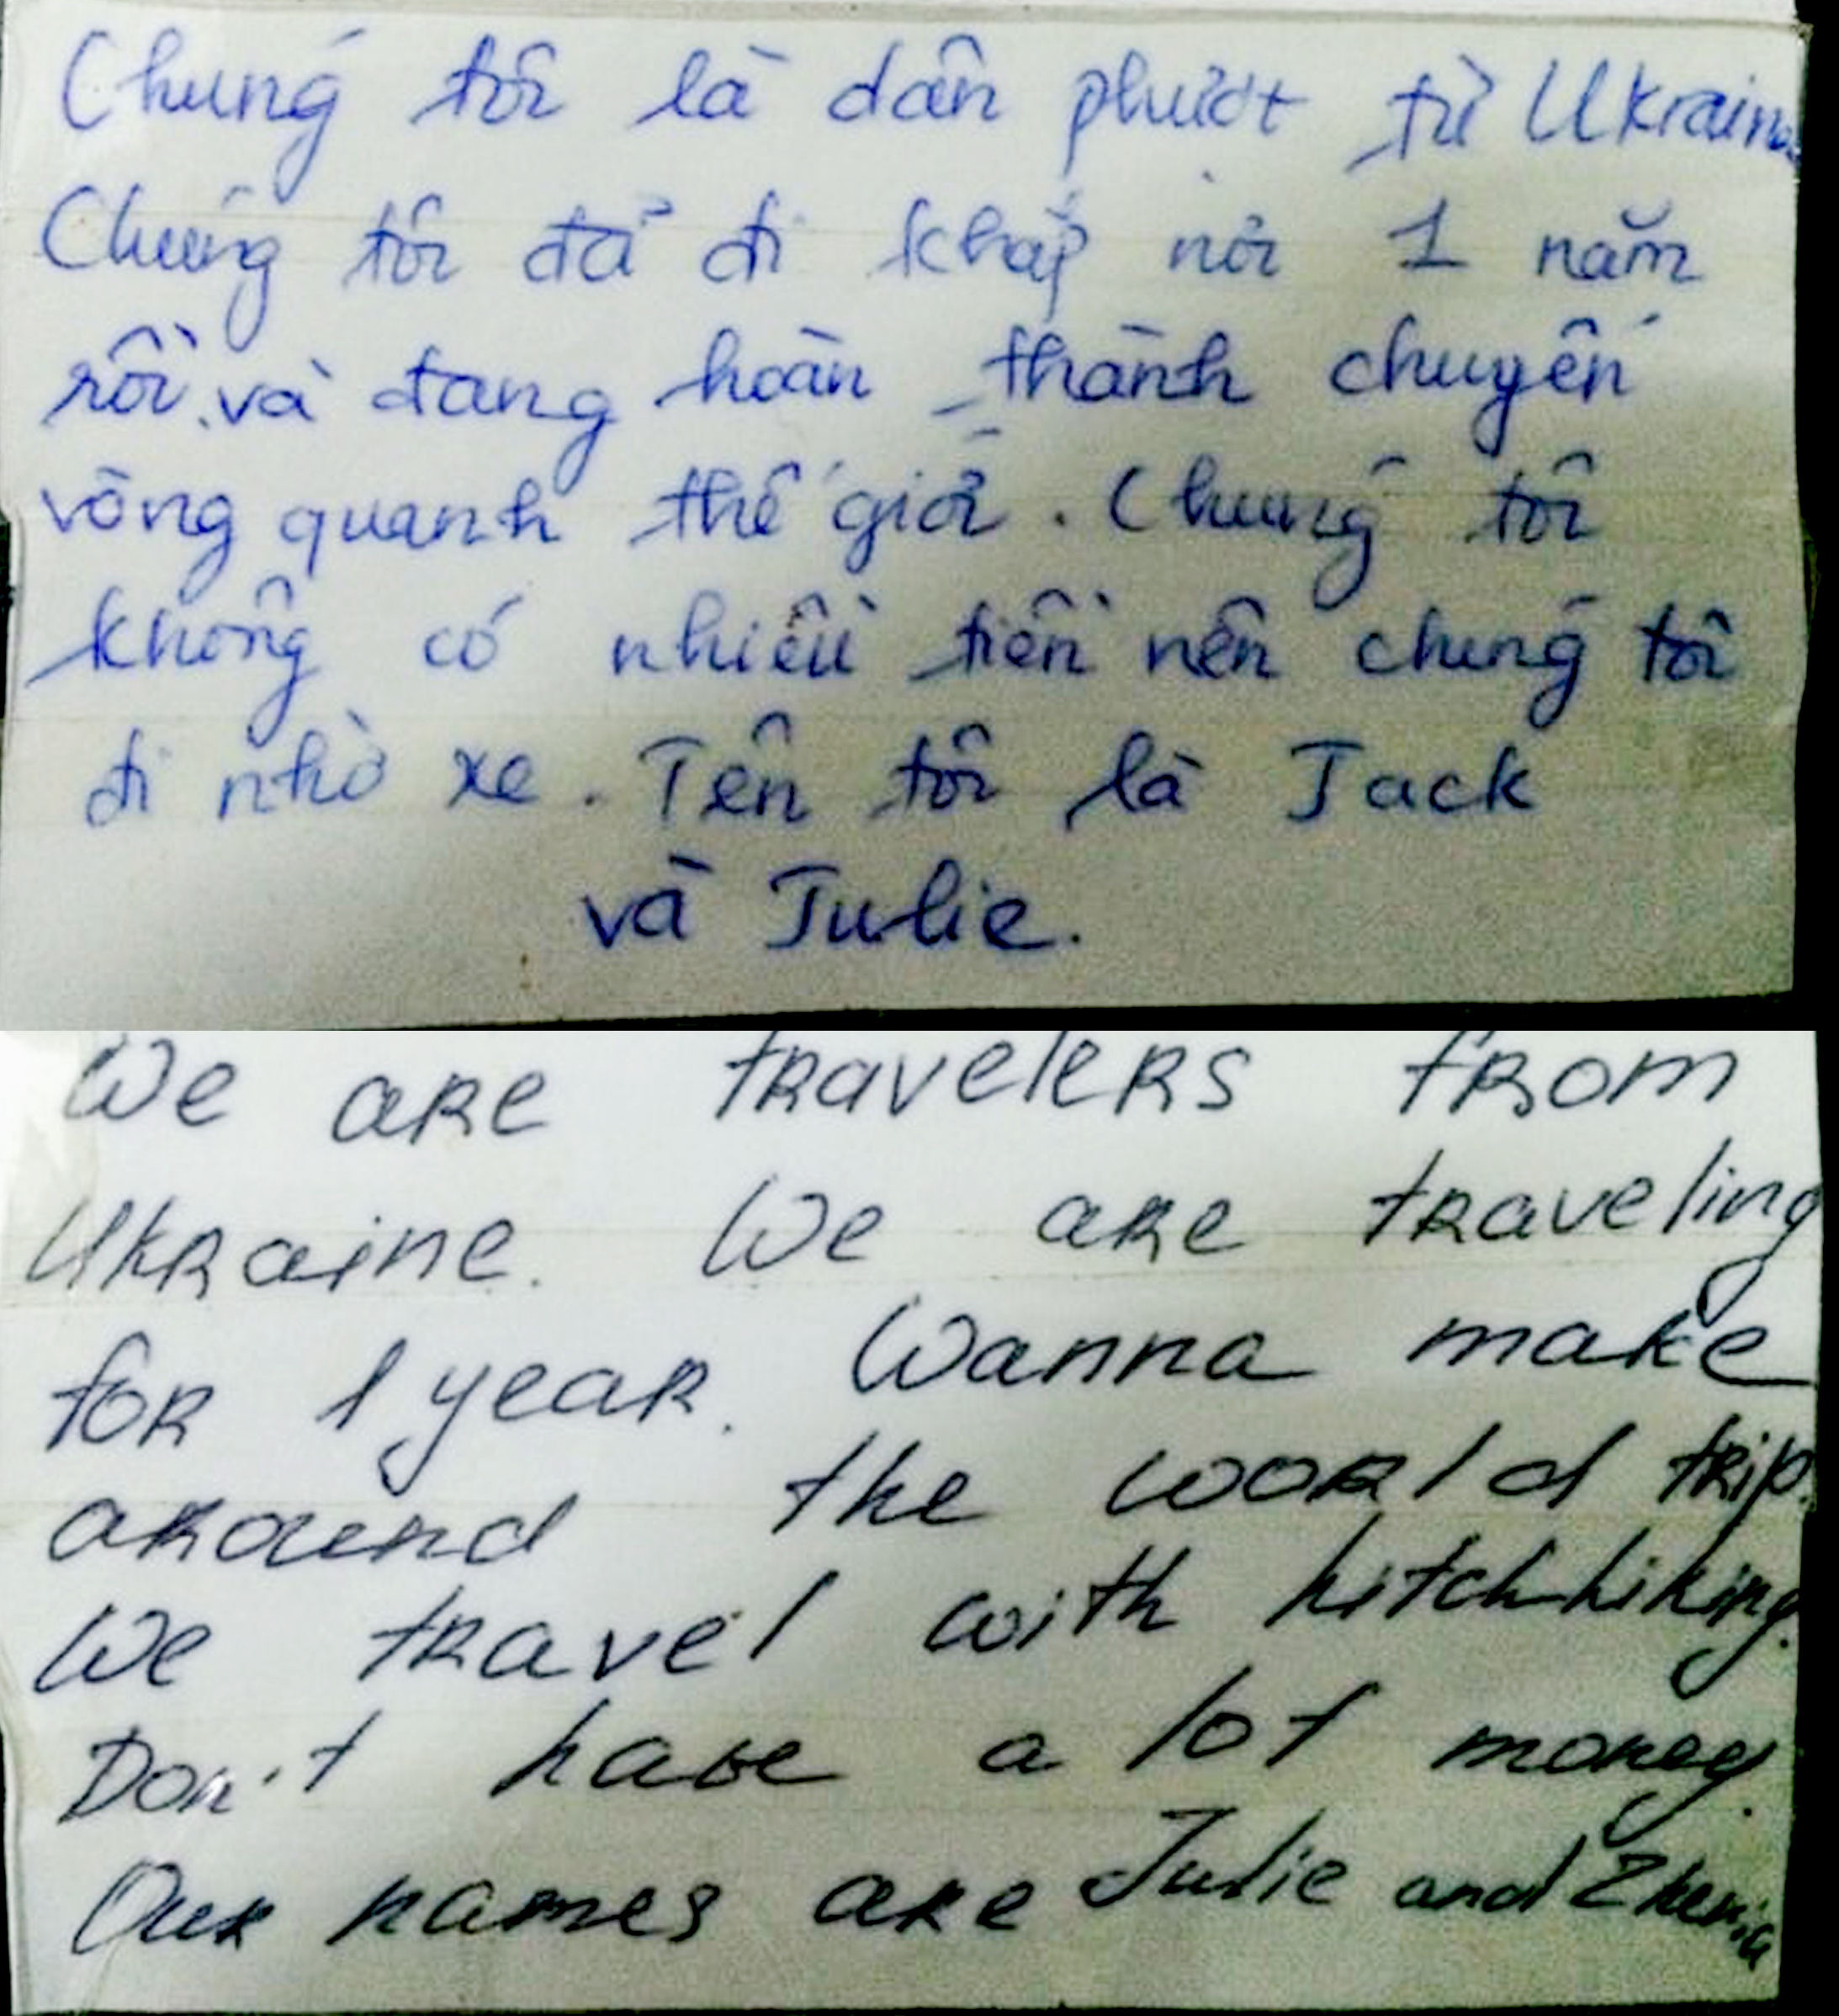 Chúng tôi là dân phượt từ Ukraine
Chúng tôi đã đi khắp nơi 1 năm
rồi và đang hoàn thành chuyến
vòng quanh thế giới. Chúng tôi
không có nhiều tiền nên chúng tôi
đi nhờ xe. Tên tôi là Jack
và Julie.
We are travelers from
Ukraine. We are traveling
for 1 year. Wanna make
around the world trip.
We travel with hitch-hiking.
Don't have a lot money.
Our names are Julie and Zhenia